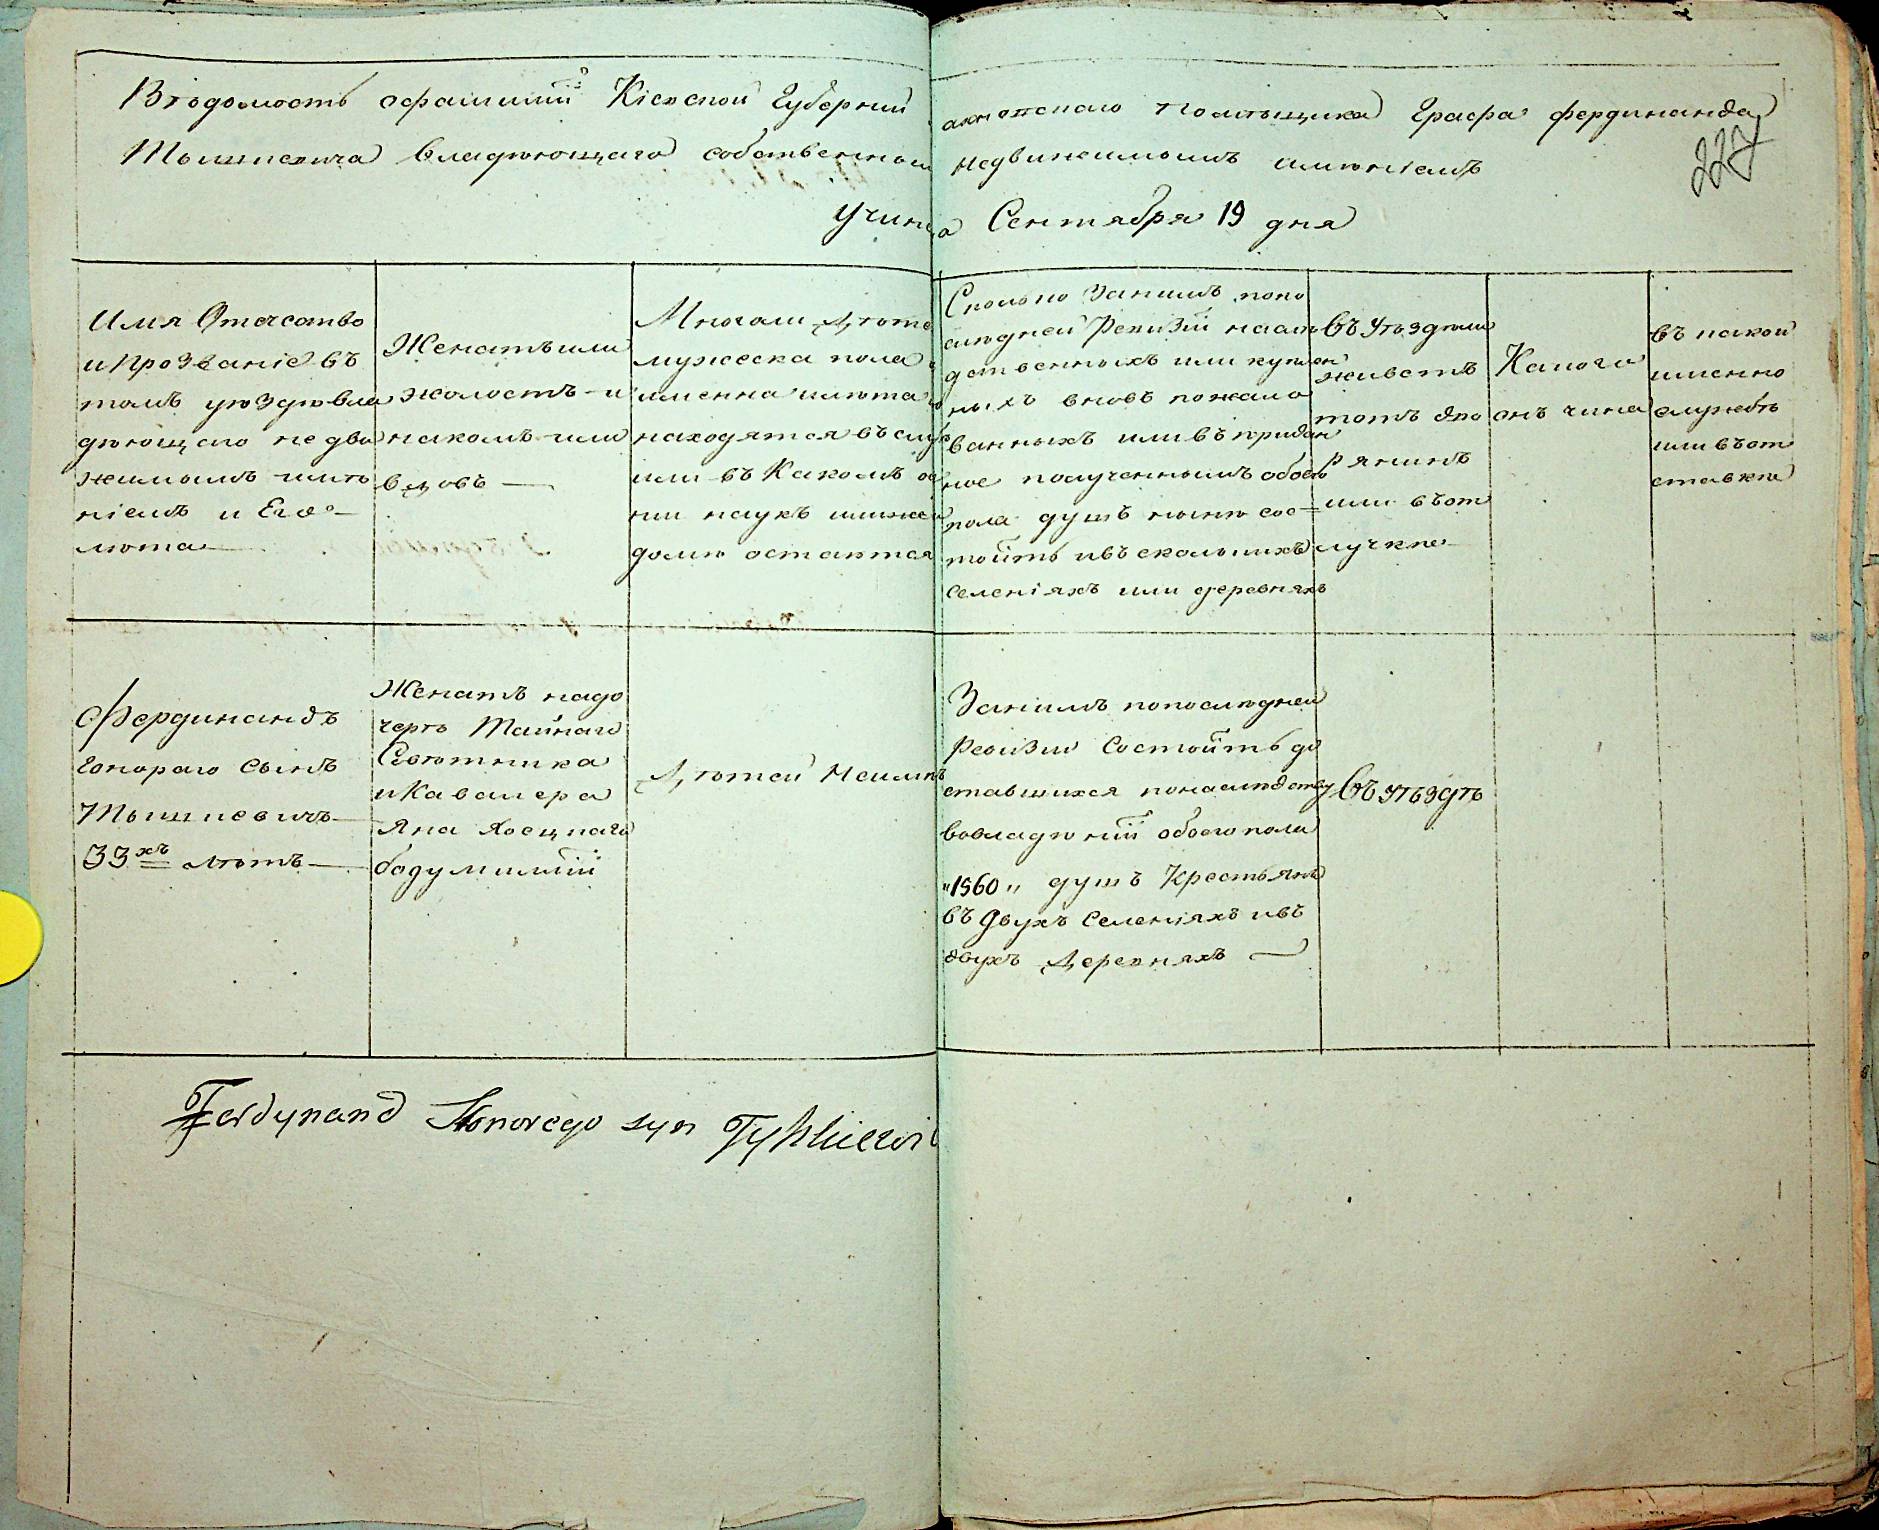 Вѣдомость офамиліи Кіевской Губерніи махновскаго Помѣщика Графа Фердинанда
Тышкевича владѣющаго собственным недвижимымъ имѣніемъ
227
Сентября 19 дня
Имя Отечество
и Прозваніе въ
томъ уѣздѣ вла
дѣющаго недви
жимымъ имѣ
ніемъ и Его
лѣта
Женатъ или
холостъ и
на комъ или
вдовъ
Многоли Дѣте
мужеска пола
имена и лѣта
находятся въ слу
или въ Какомъ
ни наукъ или же
домѣ остаются
Сколько Занимъ попо
слѣдней Ревизіи насл
дственныхъ или куплен
ныхъ вновь пожало
ванныхъ или въ придан
ное полученнымъ обоего
пола душъ нынѣ сос
тоитъ ивъ сколькихъ
селеніяхъ или деревняхъ
Въ Уѣздѣли
живетъ
тотъ дво
рянинъ
или въ от
лучке
Какого
онъ чина
въ какой
именно
службѣ
или въ от
ставке
Фердинандъ
Гонораго Сынъ
Тышкевичъ
33хъ лѣтъ
Женатъ на до
черѣ Тайнаго
Совѣтника
и Кавалера
Яна
Дѣтей Неимѣ
Занимъ попослѣдней
Ревизіи Состоитъ до
ставшихся понаслѣдству
вовладѣніи обоего пола
"1560" душъ Крестьянъ
въ Двухъ Селеніяхъ ивъ
двухъ Деревняхъ
Въ уѣздѣ
Ferdynand Honorego syn Tyszkiewi